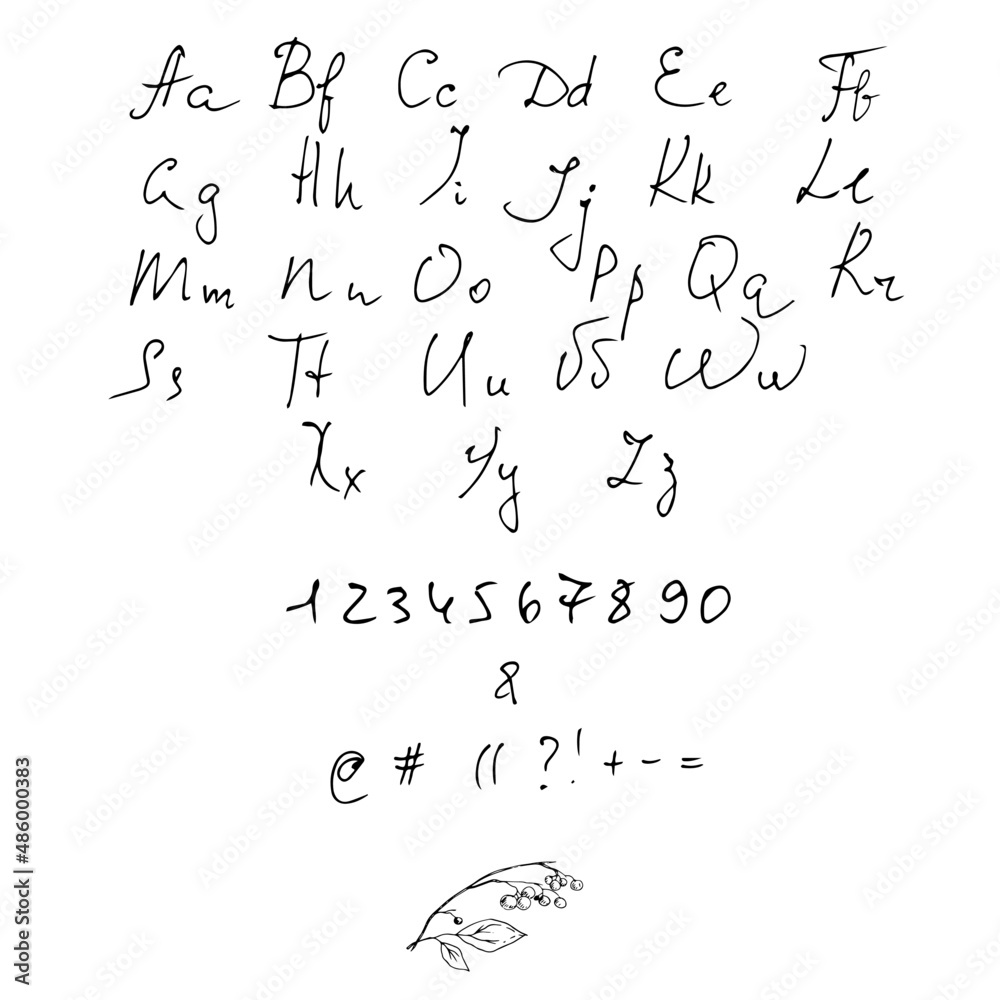 Aa Bf Cc Dd Ee Fb
Gg Hh Ii Jj Kk Ll
Mm Nn Oo Pp Qq Rr
Ss Tt Uu Vv Ww
Xx Yy Zz
1234567890
&
@ # (( ?! + - =
Adobe Stock | #486000383